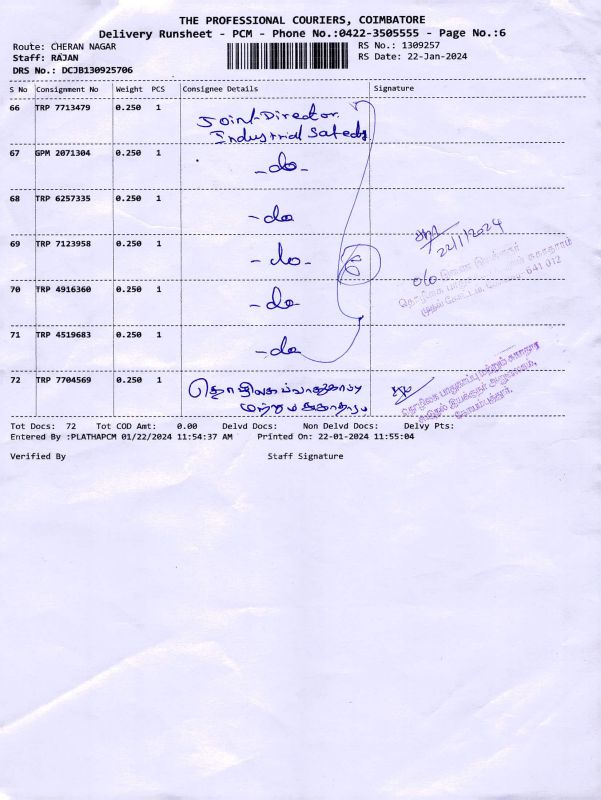 THE PROFESSIONAL COURIERS, COIMBATORE
Delivery Runsheet - PCM - Phone No.:0422-3505555 - Page No.:6
Route: CHERAN NAGAR
RS No.: 1309257
Staff: RAJAN
RS Date: 22-Jan-2024
DRS No.: DCJB130925706
S No Consignment No Weight PCS Consignee Details Signature
66 TRP 7713479 0.250 1 Joint-Director
Industrial Safety
67 GPM 2071304 0.250 1 -do-
68 TRP 6257335 0.250 1 -do
69 TRP 7123958 0.250 1 -do-
22/1/2024
6
70 TRP 4916360 0.250 1 -do
O/o
641 012
71 TRP 4519683 0.250 1 -do
72 TRP 7704569 0.250 1 தொழிலகப்பாதுகாப்பு
மற்றும் சுகாதாரம்
தொழிலக பாதுகாப்பு மற்றும் சுகாதார
Tot Docs: 72 Tot COD Amt: 0.00 Delvd Docs: Non Delvd Docs: Delvy Pts:
Entered By :PLATHAPCM 01/22/2024 11:54:37 AM Printed On: 22-01-2024 11:55:04
Verified By Staff Signature